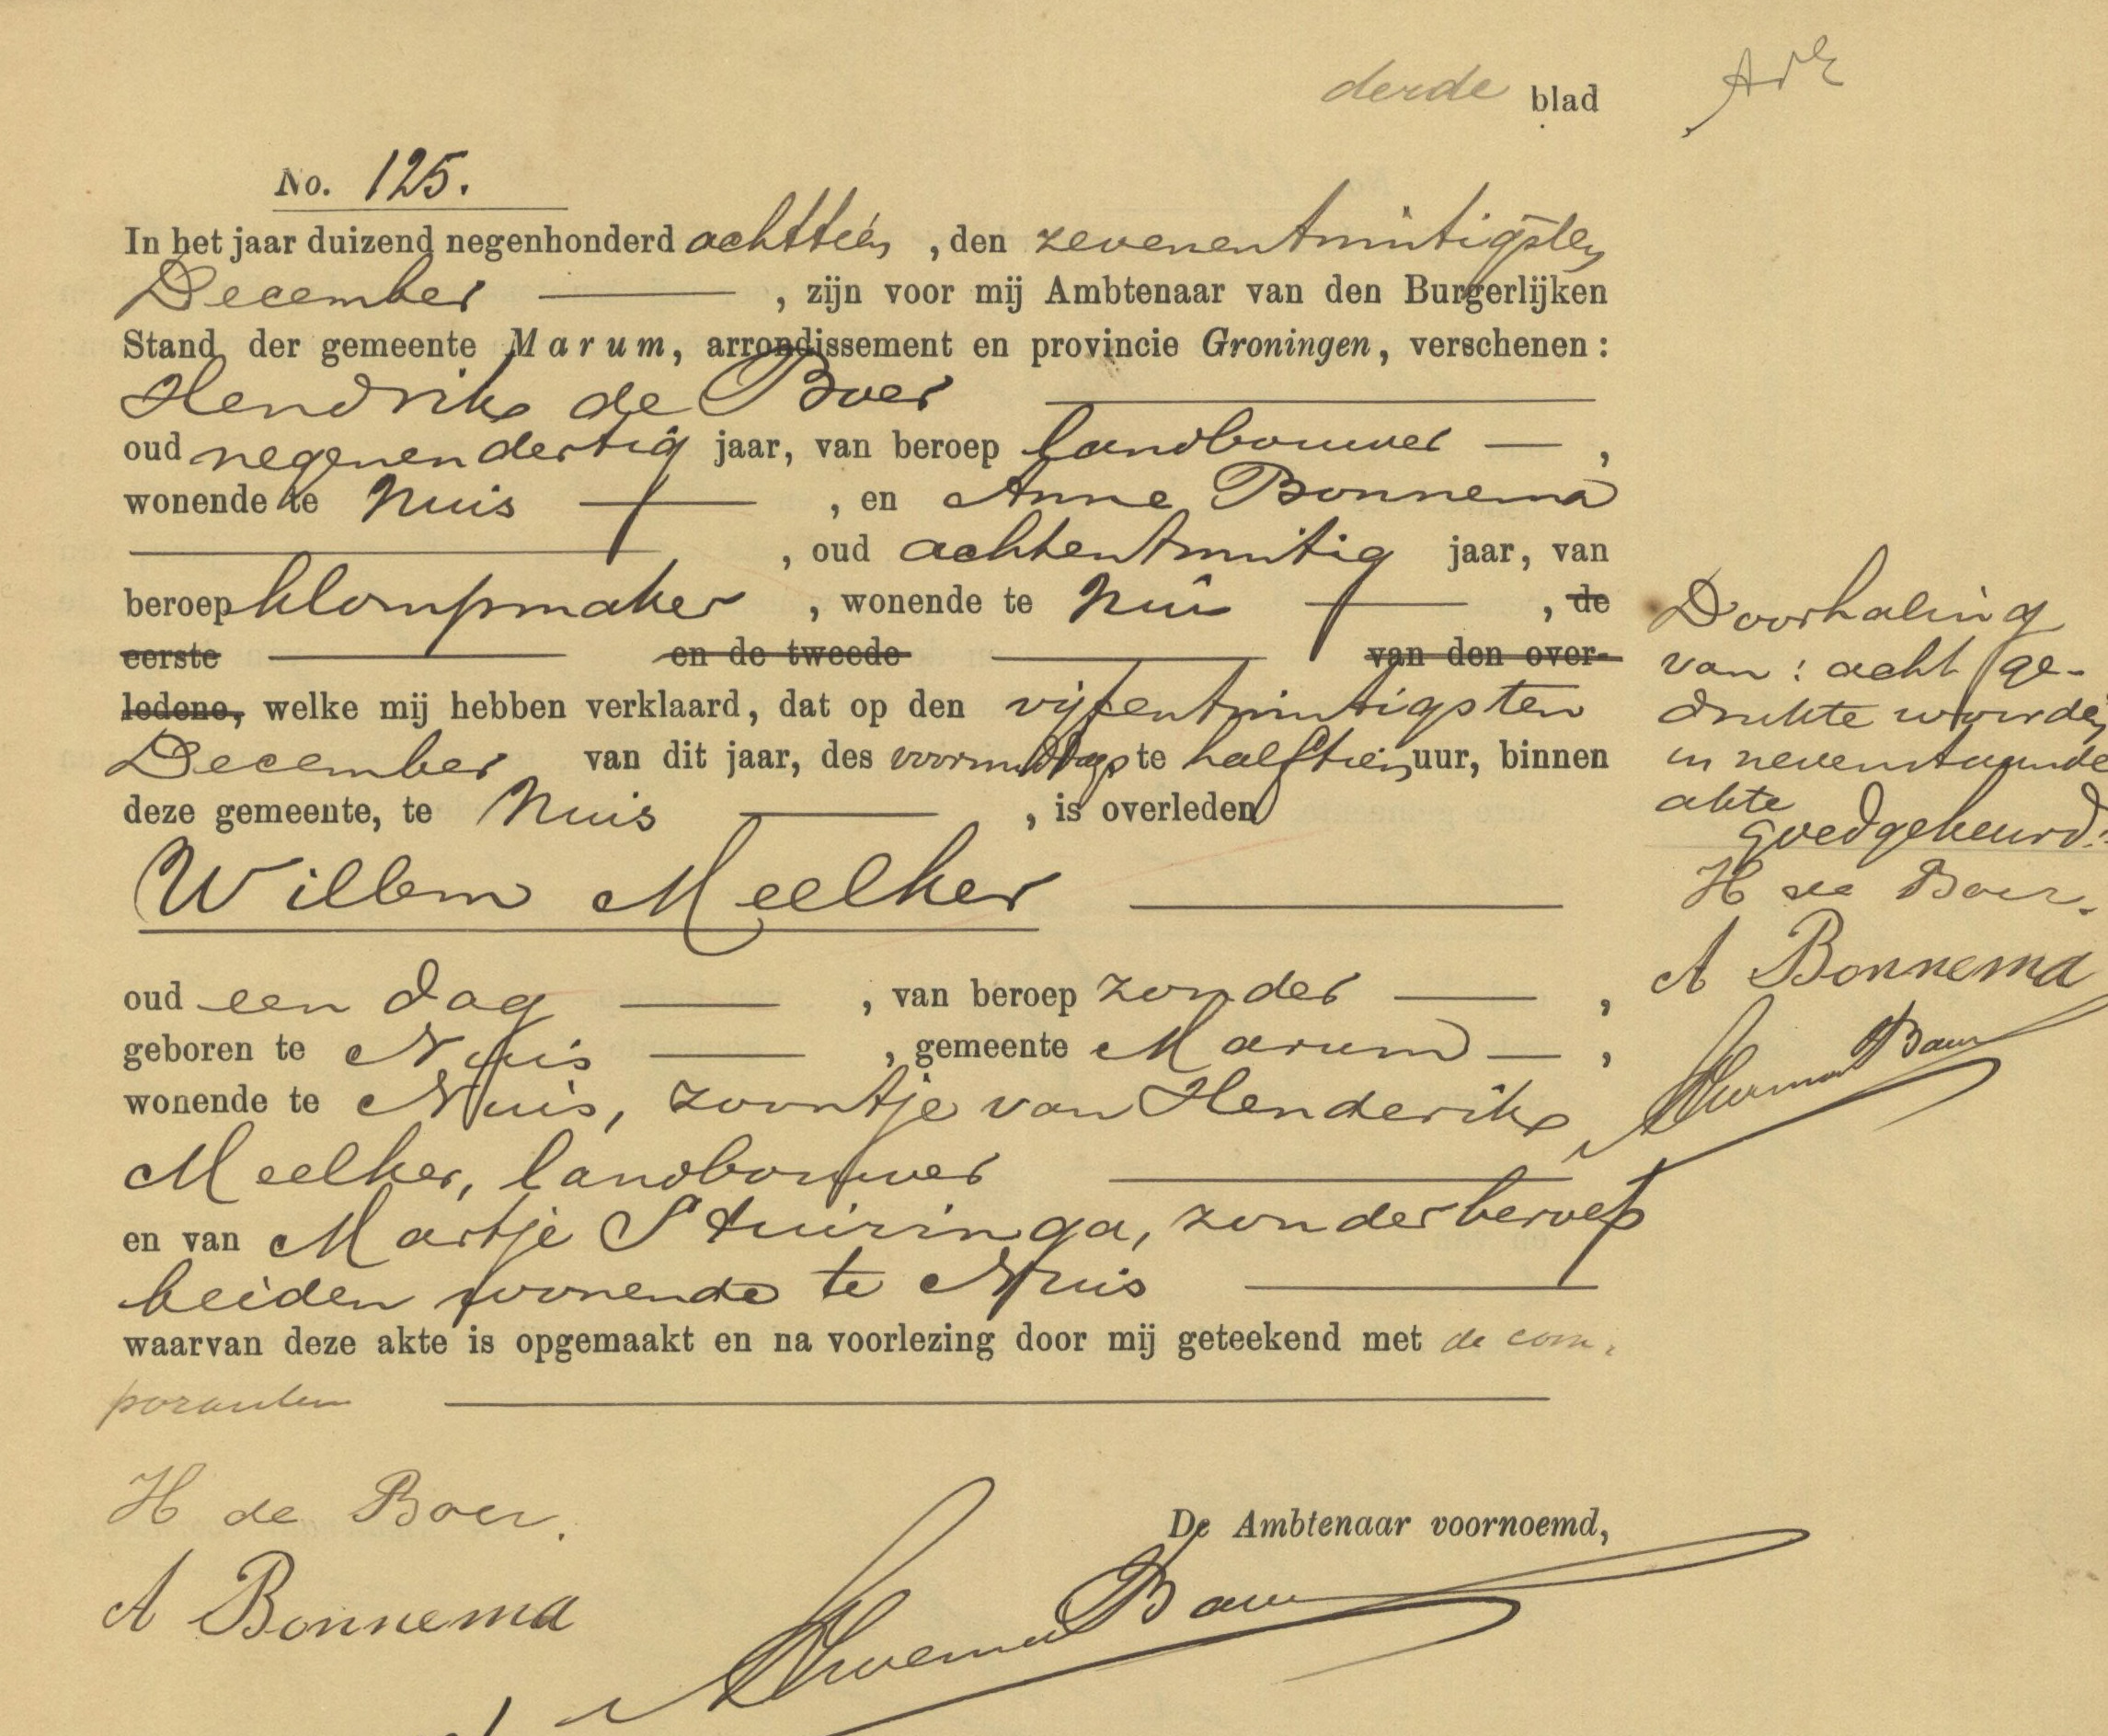 derde blad
No. 125.
In het jaar duizend negenhonderd achttien, den zevenentwintigsten
December , zijn voor mij Ambtenaar van den Burgerlijken
Stand der gemeente Marum, arrondissement en provincie Groningen, verschenen:
Hendrik de Boer
oud negenendertig jaar, van beroep landbouwer ,
wonende te Nuis , en Anne Bonnema
, oud achtentwintig jaar, van
beroep klompmaker , wonende te Nuis , de
eerste en de tweede van den over-
ledene, welke mij hebben verklaard, dat op den vijfentwintigsten
December van dit jaar, des voormiddags te half tien uur, binnen
deze gemeente, te Nuis , is overleden
Willem Meelker
oud een dag , van beroep zonder ,
geboren te Nuis , gemeente Marum ,
wonende te Nuis, zoontje van Henderik
Meelker, landbouwer
en van Martje Stuiringa, zonder beroep
beiden wonende te Nuis
waarvan deze akte is opgemaakt en na voorlezing door mij geteekend met de com-
paranten
Doorhaling
van: acht ge-
drukte woorden
in nevenstaande
akte
goedgekeurd.
H de Boer.
A Bonnema
H de Boer.
De Ambtenaar voornoemd,
A Bonnema